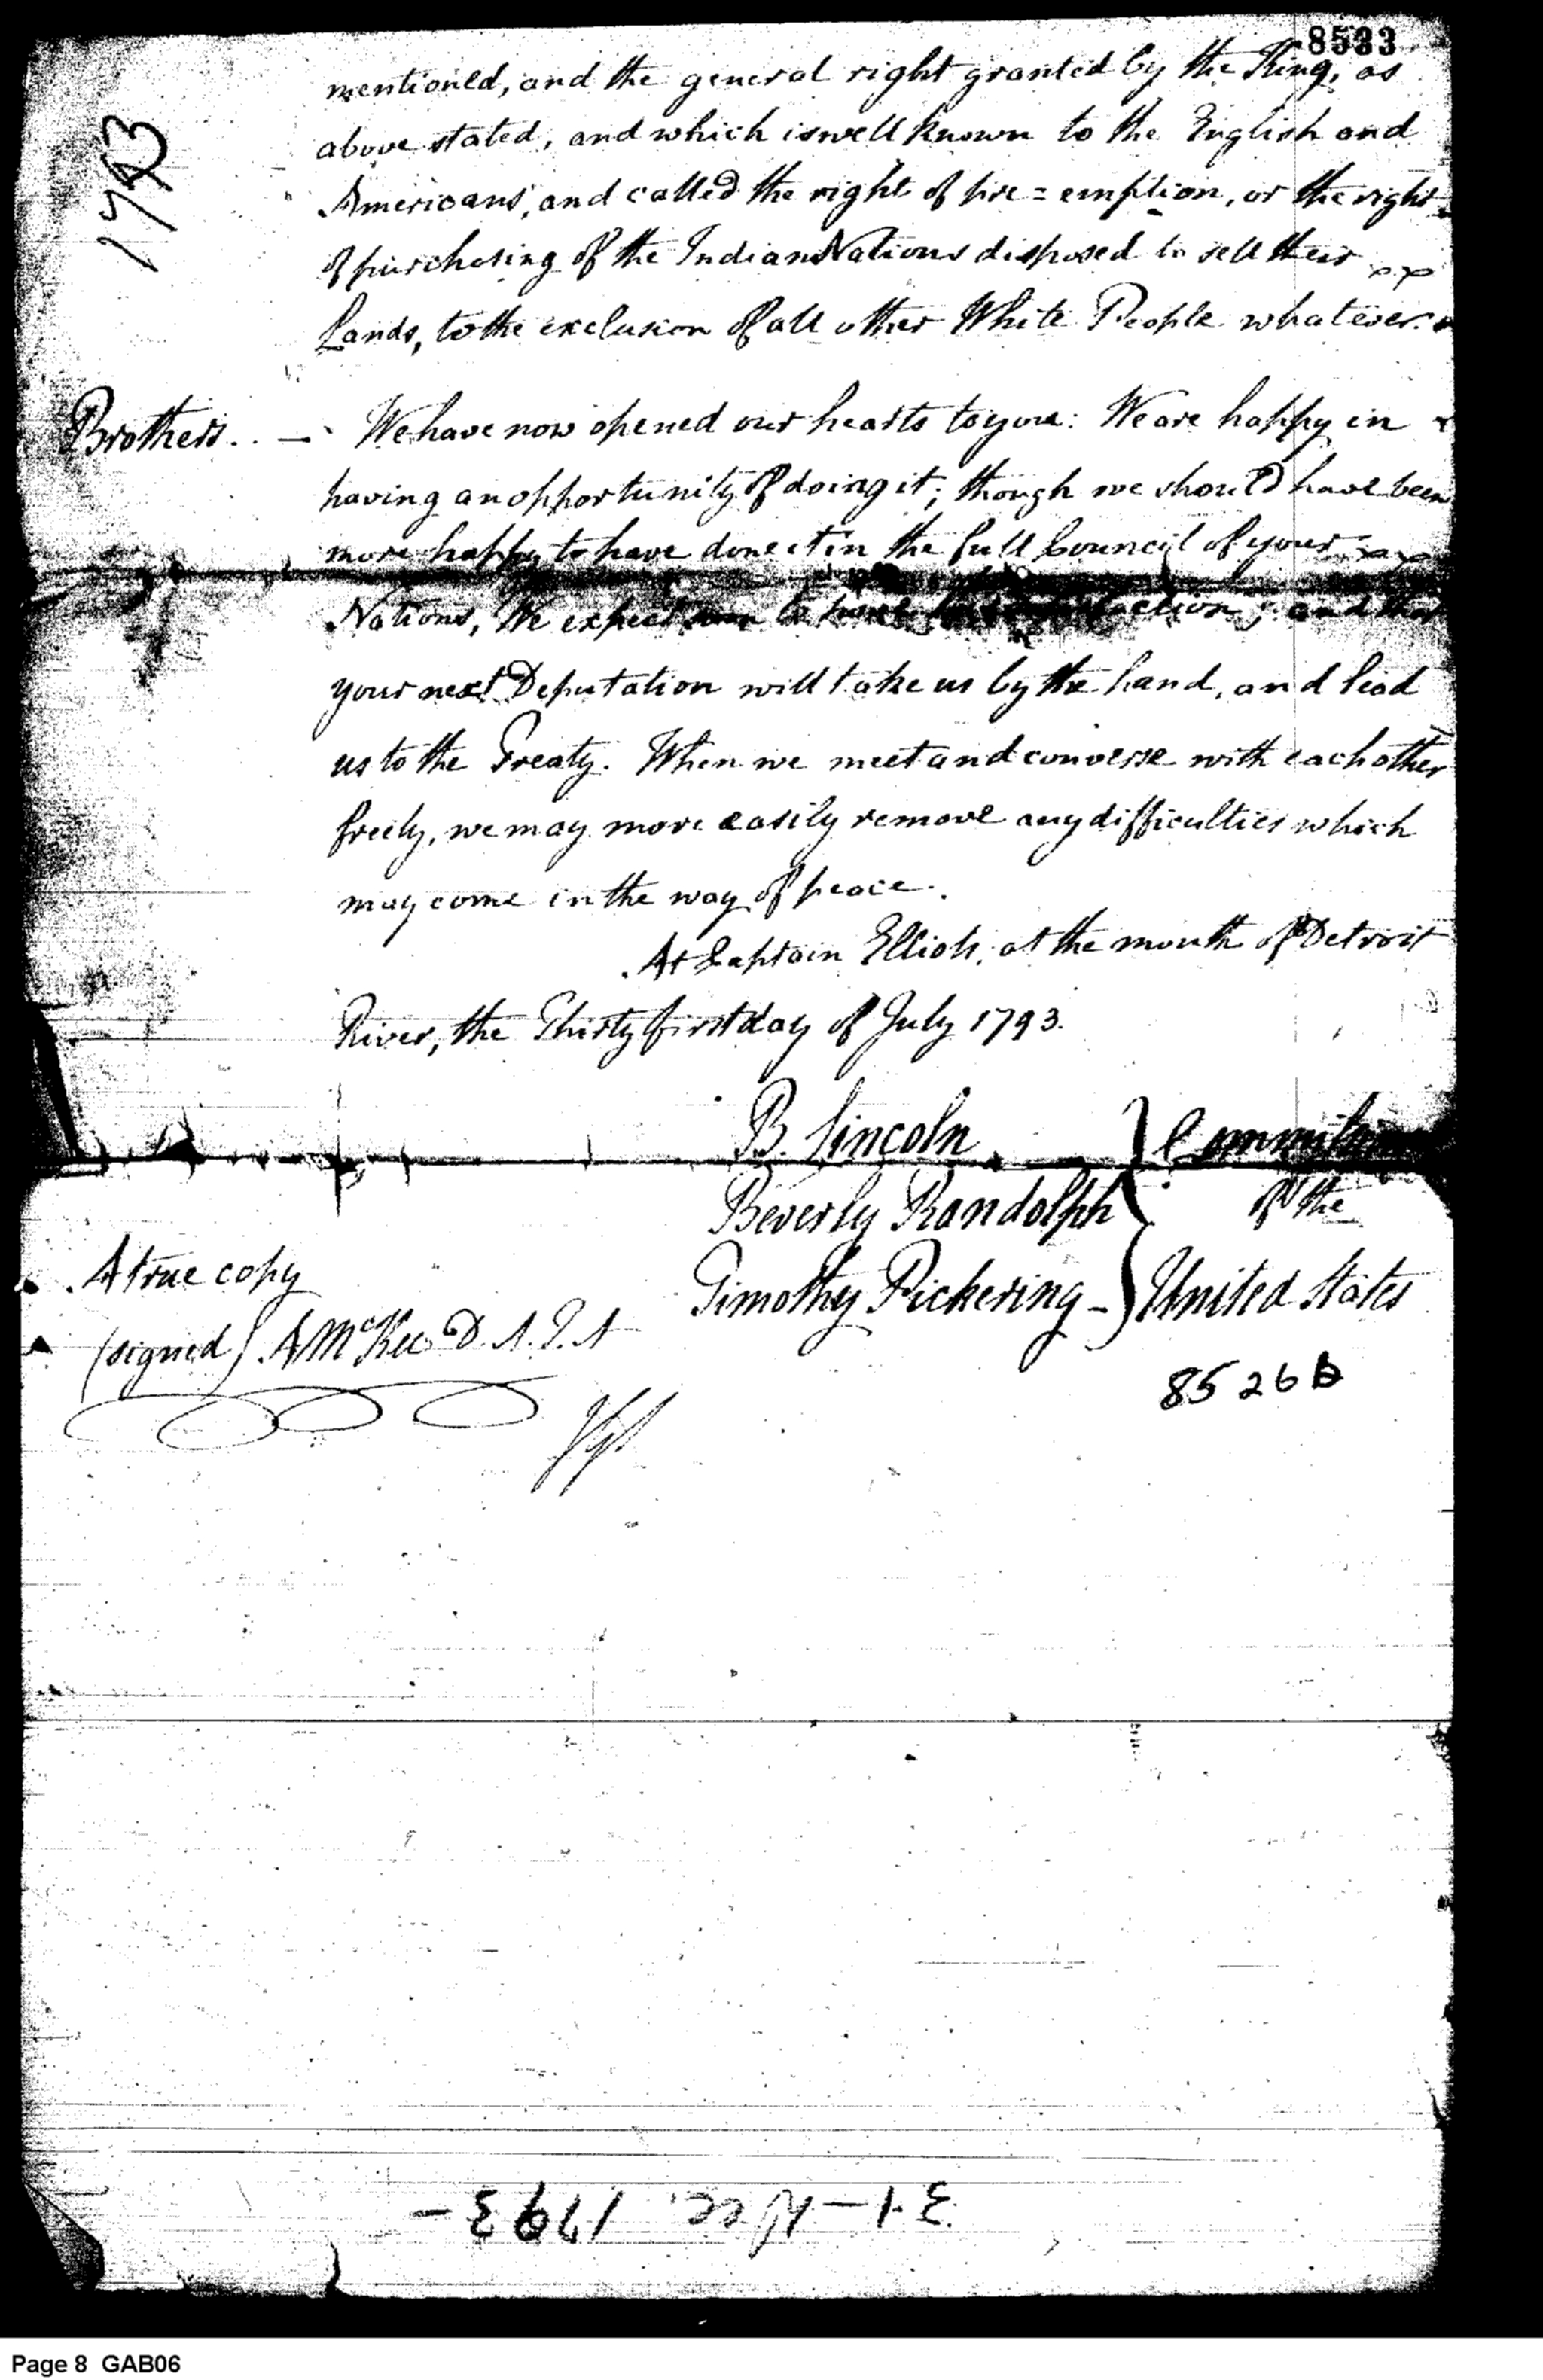 8533
1793
mentioned, and the general right granted by the King, as
above stated, and which is well known to the English and
Americans, and called the right of pre=emption, or the right
of purchasing of the Indian Nations disposed to sell their
Lands, to the exclusion of all other White People whatever.
Brothers. — We have now opened our hearts to you: We are happy in
having an opportunity of doing it; though we should have been
more happy to have done it in the full Council of your
Nations, We expect soon to have and that
your next Deputation will take us by the hand, and lead
us to the Treaty. When we meet and converse with each other
freely, we may more easily remove any difficulties which
may come in the way of peace.
At Captain Elliots, at the mouth of Detroit
River, the Thirty first day of July 1793.
B. Lincoln
Beverly Randolph of the
Timothy Pickering - United States
A true copy
(signed) A McKee D. A. I. A
8526b
1793-
Page 8 GAB06